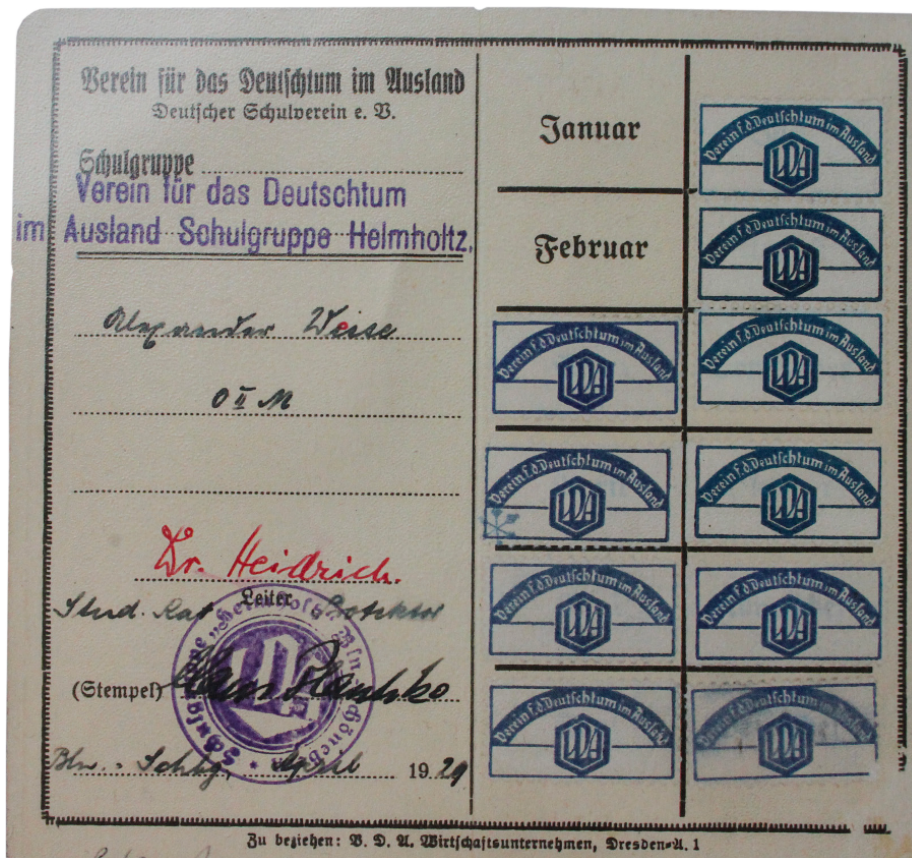 Verein für das Deutschtum im Ausland
Deutscher Schulverein e. V.
Schulgruppe
Verein für das Deutschtum
im Ausland Schulgruppe Helmholtz.
Alexander Weise
O II M
Dr. Heidrich.
Leiter
Stud. Rat
(Stempel)
Bln. - Schbg. April 1929
Januar
Februar
Verein f. d. Deutschtum im Ausland
VDA
Verein f. d. Deutschtum im Ausland
VDA
Verein f. d. Deutschtum im Ausland
VDA
Verein f. d. Deutschtum im Ausland
VDA
Verein f. d. Deutschtum im Ausland
VDA
Verein f. d. Deutschtum im Ausland
VDA
Verein f. d. Deutschtum im Ausland
VDA
Verein f. d. Deutschtum im Ausland
VDA
Verein f. d. Deutschtum im Ausland
VDA
Verein f. d. Deutschtum im Ausland
VDA
Zu beziehen: V. D. A. Wirtschaftsunternehmen, Dresden-A. 1